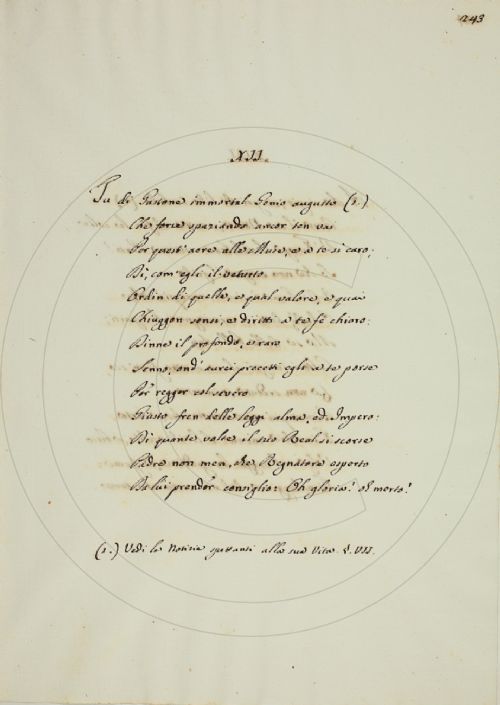 243
XII.
Tu di Gastone immortal Genio augusto (1.)
Che forse spaziando ancor ten vai
Per quest' aere alle Muse, e a te sì caro;
Dì, com' egli il vetusto
Ordin di quelle, e qual valore, e quai
Chiuggon sensi, e diritti a te fè chiaro:
Dinne il profondo, e raro
Senno, ond' aurei precetti egli a te porse
Per regger col severo
Giusto fren delle leggi alma, ed Impero:
Dì quante volte il tuo Real si scorse
Padre non men, che Regnatore esperto
Da lui prender consiglio: Oh gloria! oh merto!
(1.) Vedi le Notizie spettanti alla sua Vita §. VII.